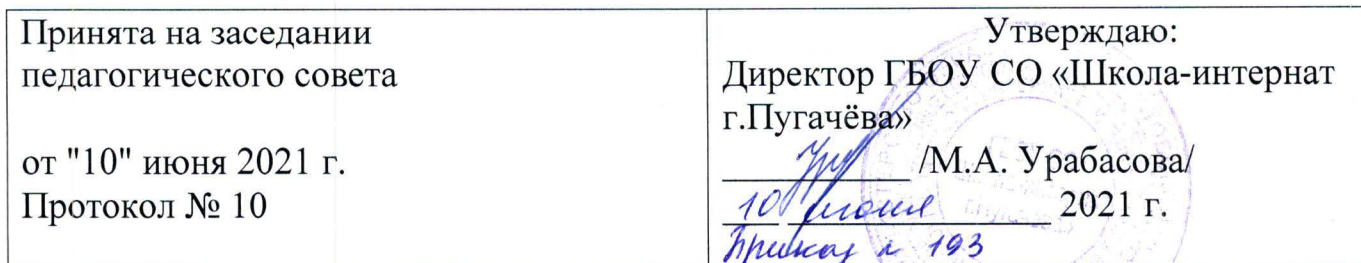 Принята на заседании
педагогического совета
от "10" июня 2021 г.
Протокол № 10
Утверждаю:
Директор ГБОУ СО «Школа-интернат
г.Пугачёва»
__________ /М.А. Урабасова/
10 июня 2021 г.
Приказ № 193